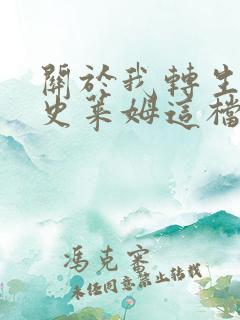 關於我轉生
史萊姆這檔
馮克寒
未經同意禁止轉載